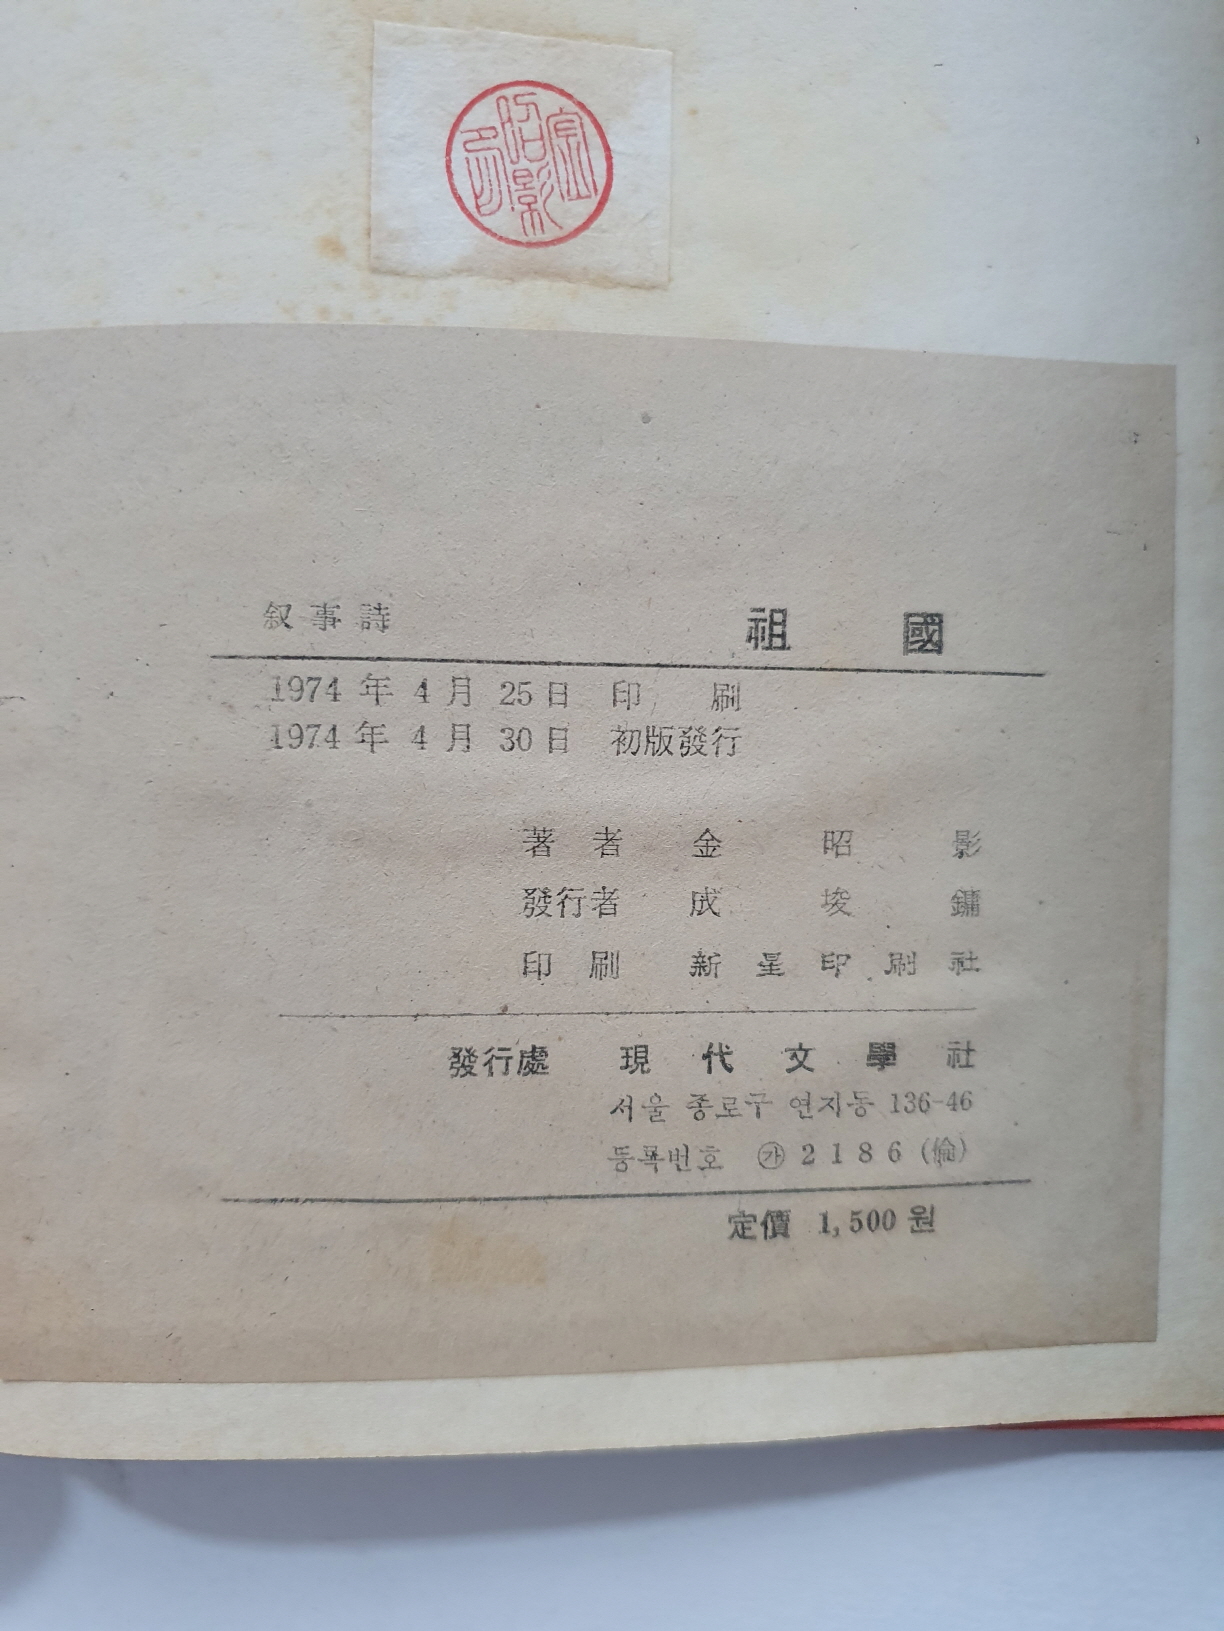 叙事詩 祖國
1974年 4月 25日 印 刷
1974年 4月 30日 初版發行
著者 金昭影
發行者 成埈鏞
印刷 新星印刷社
發行處 現代文學社
서울 종로구 연지동 136-46
등록번호 ㉮2186(倫)
定價 1,500원